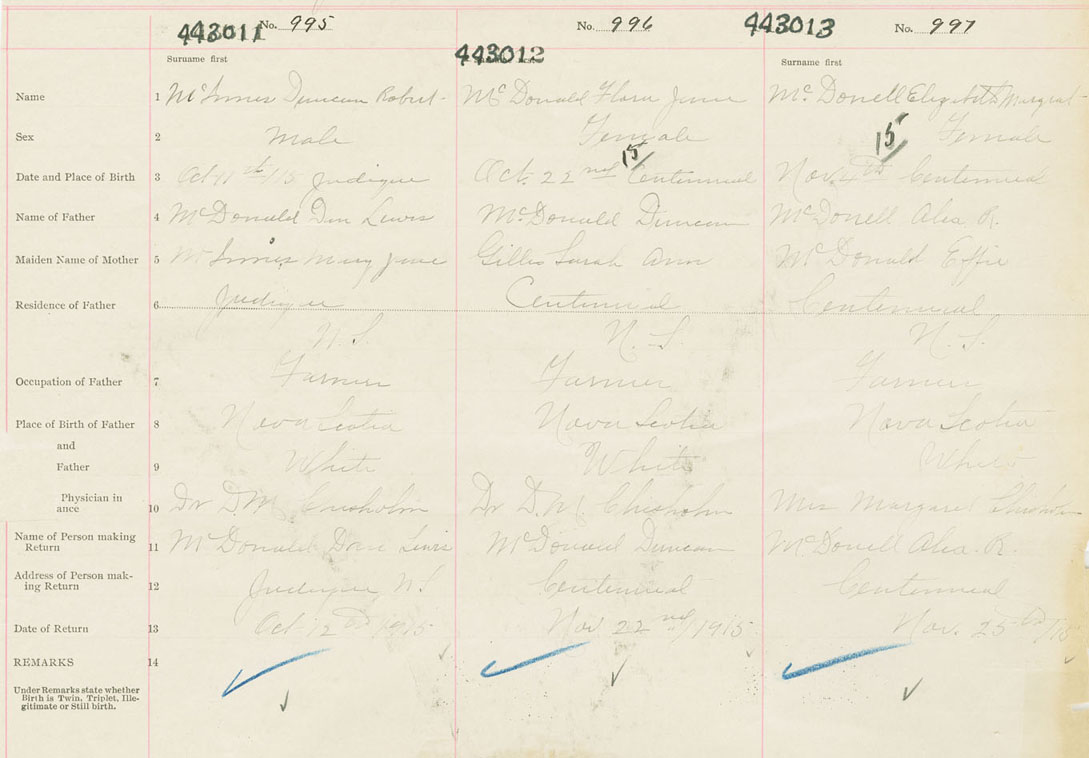 443011 No. 995 No. 996 443013 No. 997
Surname first 443012 Surname first
Name 1 McInnes Duncan Robert McDonald Flora Jane McDonell Elizabeth Margaret
Sex 2 Male Female 15 Female
Date and Place of Birth 3 Oct 11th/15 Judique Oct. 22nd 15/ Centennial Nov. 4th Centennial
Name of Father 4 McDonald Dan Lewis McDonald Duncan McDonell Alex. R.
Maiden Name of Mother 5 McInnis Mary Jane Gillis Sarah Ann McDonald Effie
Residence of Father 6 Judique Centennial Centennial
N.S. N.S. N.S.
Occupation of Father 7 Farmer Farmer Farmer
Place of Birth of Father 8 Nova Scotia Nova Scotia Nova Scotia
and
Father 9 White White White
Physician in
ance 10 Dr D.M. Chisholm Dr D.M. Chisholm Mrs Margaret Chisholm
Name of Person making
Return 11 McDonald Dan Lewis McDonald Duncan McDonell Alex. R.
Address of Person mak-
ing Return 12 Judique N.S. Centennial Centennial
Date of Return 13 Oct 12th 1915 Nov 22nd/1915 Nov. 25th/15
REMARKS 14
Under Remarks state whether
Birth is Twin, Triplet, Ille-
gitimate or Still birth.